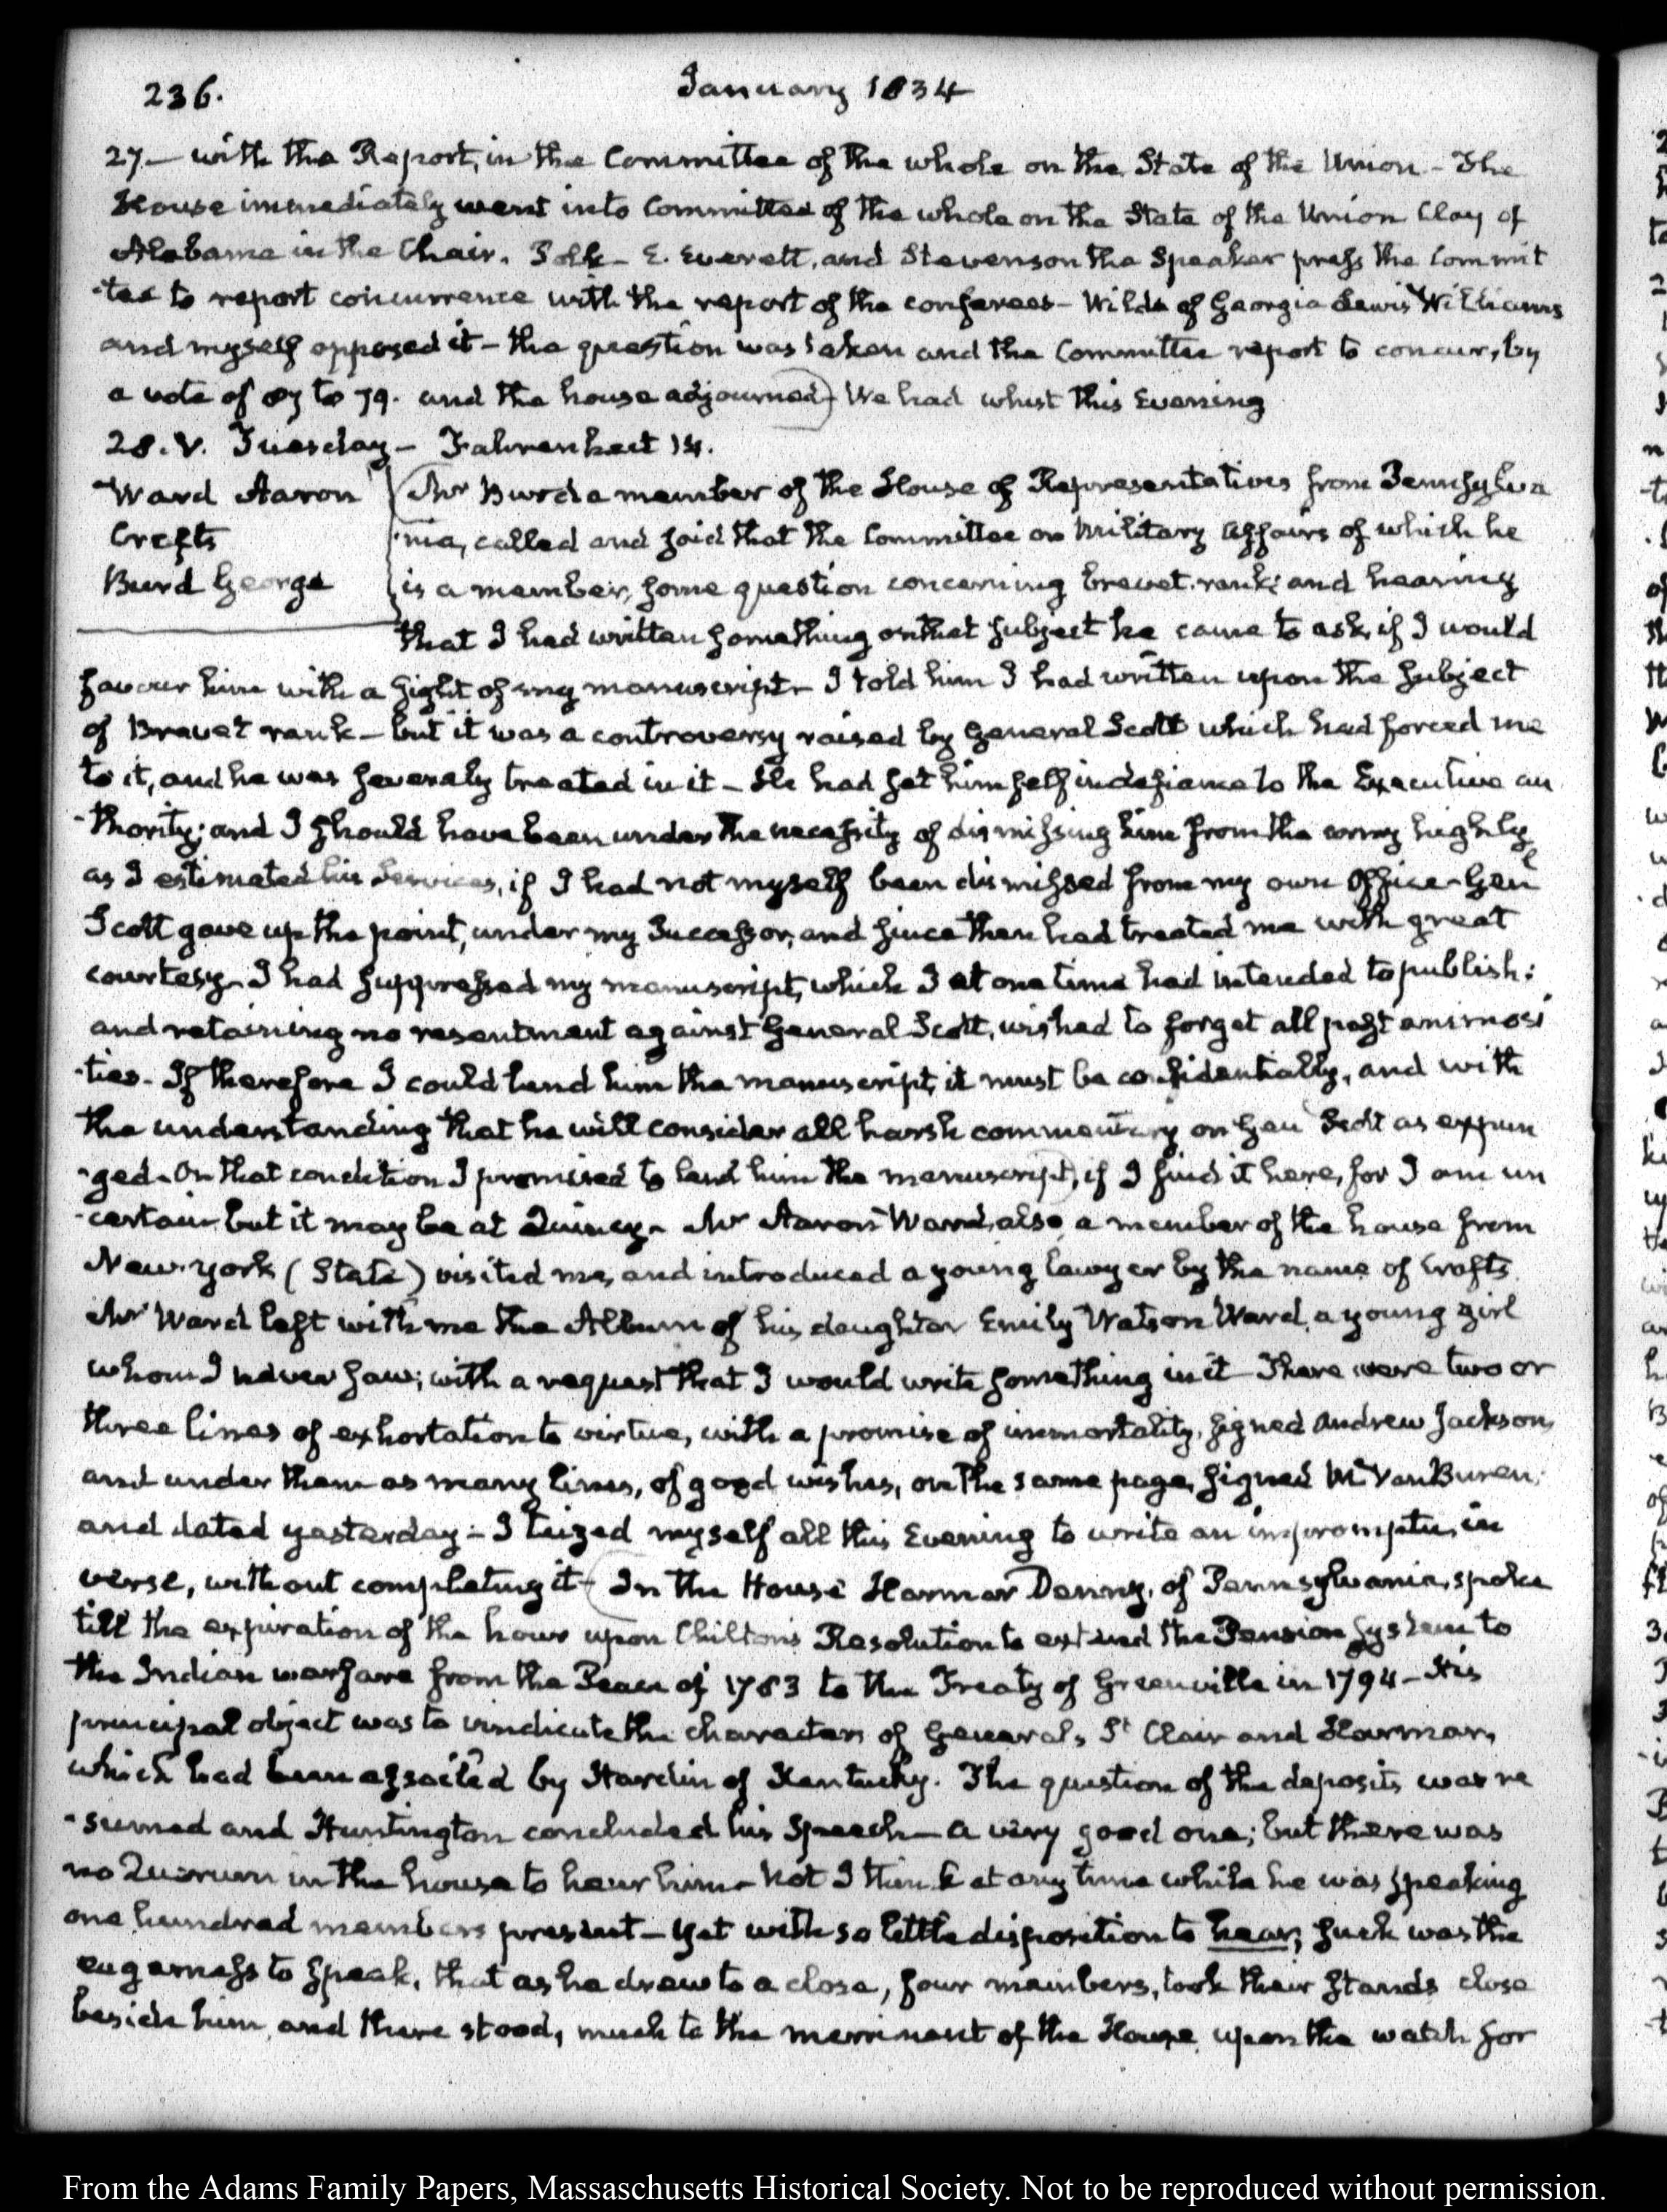 236.
January 1834
27— with the Report, in the Committee of the whole on the State of the Union – The
House immediately went into Committee of the whole on the State of the Union Clay of
Alabama in the Chair. Polk – E. Everett, and Stevenson the Speaker press the Commit
-tee to report concurrence with the report of the conferees – Wilde of Georgia Lewis Williams
and myself opposed it – the question was taken and the Committee report to concur, by
a vote of 87 to 79. and the house adjourned) We had whist this Evening
28. V. Tuesday – Fahrenheit 14.
Ward Aaron
Crafts
Burd George
(Mr Burd a member of the House of Representatives from Pennsylva
-nia, called and said that the Committee on Military Affairs of which he
is a member, some question concerning brevet rank; and hearing
that I had written something on that subject he came to ask, if I would
favour him with a sight of my manuscript – I told him I had written upon the subject
of Brevet rank – but it was a controversy raised by General Scott which had forced me
to it, and he was severely treated in it – He had set himself in defiance to the Executive au
-thority; and I should have been under the necessity of dismissing him from the army highly
as I estimated his Services, if I had not myself been dismissed from my own Office – Genl
Scott gave up the point, under my Successor, and since then had treated me with great
courtesy – I had suppressed my manuscript, which I at one time had intended to publish:
and retaining no resentment against General Scott, wished to forget all past animosi
-ties. If therefore I could lend him the manuscript, it must be confidentially, and with
the understanding that he will consider all harsh commentary on Gen Scott as expun
-ged. On that condition I promised to lend him the manuscript), if I find it here, for I am un
-certain but it may be at Quincy – Mr Aaron Ward, also a member of the house from
New-york (State) visited me, and introduced a young lawyer by the name of Crafts
Mr Ward left with me the Album of his daughter Emily Watson Ward, a young girl
whom I never saw; with a request that I would write something in it There were two or
three lines of exhortation to virtue, with a promise of immortality, signed Andrew Jackson,
and under them as many lines, of good wishes, on the same page, signed M. Van Buren;
and dated yesterday – I teized myself all this Evening to write an impromptu, in
verse, without completing it – (In the House Harmar Denny, of Pennsylvania, spoke
till the expiration of the hour upon Chilton's Resolution to extend the Pension System to
the Indian warfare from the Peace of 1783 to the Treaty of Greenville in 1794 – His
principal object was to vindicate the characters of Generals St Clair and Harmar,
which had been assailed by Hardin of Kentucky. The question of the deposits was re
-sumed and Huntington concluded his Speech – a very good one; but there was
no Quorum in the house to hear him – Not I think at any time while he was speaking
one hundred members present – Yet with so little disposition to hear, such was the
eagerness to speak, that as he drew to a close, four members, took their stands close
beside him, and there stood, much to the merriment of the House, upon the watch for
From the Adams Family Papers, Massaschusetts Historical Society. Not to be reproduced without permission.